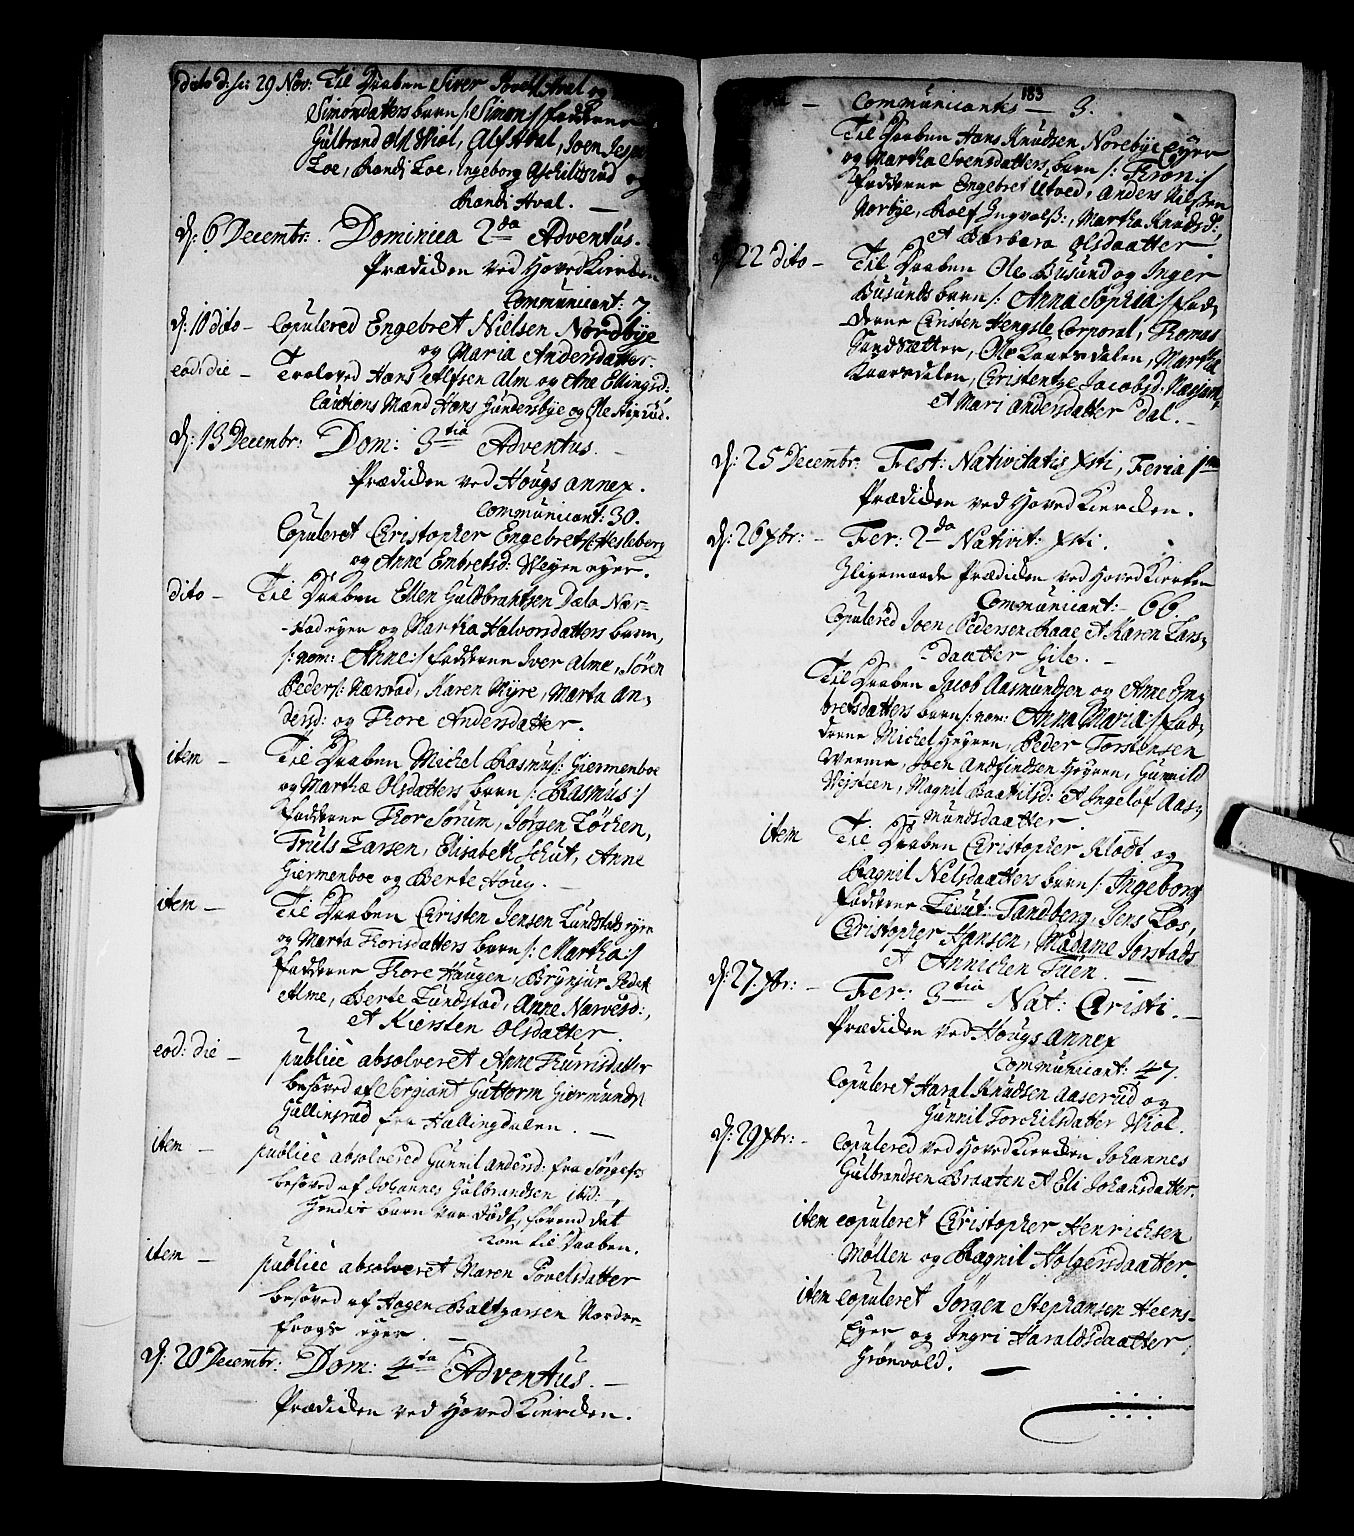 dito d: s: 29 Nov: Til Daaben Siver Povels Aval og
Simonsdatters barn /: Simon :/ fadderne
Gulbrand Viol, Alf Aval, Joen
Loe, Randi Loe, Ingeborg og
Randi Aval. —
d: 6 Decembr: Dominica 2da Adventus.
Prædicken ved Hoved Kiercken
Communicant: 7.
d: 10 dito — Copulered Engebret Nielsen Nordbye
og Maria Andersdatter.
eod: die — Troloved Hans Alfsen Alm og Ane Ellingsd:
Cautions Mænd Hans Gundersbye og Ole
d: 13 Decembr: Dom: 3tia Adventus.
Prædicken ved Hougs annex.
Communicant: 30.
Copuleret Christopher Engebrets: Hesleberg
og Anne Embretsd: Weyen eyer.
dito — Til Daaben Ellen Guldbrantsen Dæla Nær-
stad eyer og Martha Halvorsdatters barn,
/: nom: Anne :/ fadderne Iver Alme, Sören
Peders: Nærstad, Karen Myre, Marta An,
dersd: og Thore Andersdatter.
item — Til Daaben Michel Rasmus: Giermenboe
og Marthæ Olsdatters barn /: Rasmus :/
fadderne Thor Sorum, Jörgen Löchen,
Truls Larsen, Elisabett Schut, Anne
Giermenboe og Berte Houg. —
item — Til Daaben Christen Jensen Lundstads eyer
og Marta Thorisdatters barn /: Martha :/
fadderne Thore Haugen, Brynjur
Alme, Berte Lundstad, Anne Narvesd:,
et Kiersten Olsdatter.
eod: die — publicé absolveret Anne Thurrisdatter
besöved af Sergiant Guttorm Giermunds:
Gullinsrud fra Hallingdalen. —
item — publicé absolvered Gunnil Andersd: fra
besöved af Johannes Gulbrandsen ibid:
Hendis barn var dödt, förend det
kom til Daaben.
item — publicé absolveret Maren Povelsdatter
besöved af Hagen Baltzarsen Nordre-
frogs eyer. —
d: 20 Decembr: Dom: 4ta Adventus. —
Prædicken ved Hoved Kiercken.
183
— Communicantes — 3.
Til Daaben Hans Knudsen Norebye eyer
og Martha Svensdatters barn /: Thron :/
fadderne Engebret Utved, Anders Nilssen
Norbye, Rolf Ingvals:, Martha Knudsd:,
et Barbara Olsdaatter
d: 22 dito — Til Daaben Ole Busund og Inger
Busunds barn /: Anna Sophia :/ fad,
derne Carsten Hengsle Corporal, Thomas
Sandsætter, Ole Kaarsdalen, Martha
Kaarsdalen, Christentze Jacobsd:
et Mari Andersdatter Dal. —
d: 25 Decembr: Fest: Nativitatis Xsti, Feria 1ma
Prædicken ved Hoved Kiercken.
d: 26 Xbr: — Fer: 2da Nativit: Xsti.
Ligemaade Prædicken ved Hoved Kiercken
Communicant: — 66
Copulered Joen Pedersen Raae et Karen Lars,
daatter Gile. —
Til Daaben Jacob Aasmundsen og Anne Em,
bretsdatters barn /: nom: Anna Maria :/ fad,
derne Michel Heyren, Peder Torstensen
Werme, Joen Andfindsen Heyren, Gunnild
Veisteen, Magnil Baattilsd: et Ingelöf Aas,
mundsdaatter.
item Til Daaben Christopher Klodt og
Ragnil Nelsdaatters barn /: Ingeborg
fadderne Lieut: Tandberg, Jens Los,
Christopher Hansen, Madame Sorstads
et Annichen Tuen. —
d: 27 Xbr: — Fer: 3tia Nat: Cristi. —
Prædicken ved Hougs Annex
Communicant: 47.
Copuleret Haral Knudsen Aaserud og
Gunnil Torchilsdatter Viol.
d: 29 Xbr: — Copulered ved Hoved Kiercken Johannes
Gulbrandsen Braaten et Eli Johansdatter.
item copuleret Christopher Henrichsen
Möllen og Ragnil Holgersdaatter.
item copuleret Jörgen Stephansen Heens-
Eyer og Ingri Haraldsdaatter
Grönvold. —